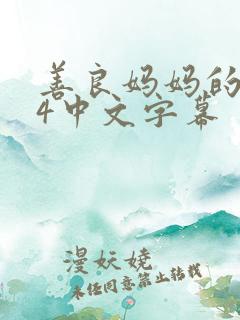 善良妈妈的
4中文字幕
漫妖娆
未经同意禁止转载